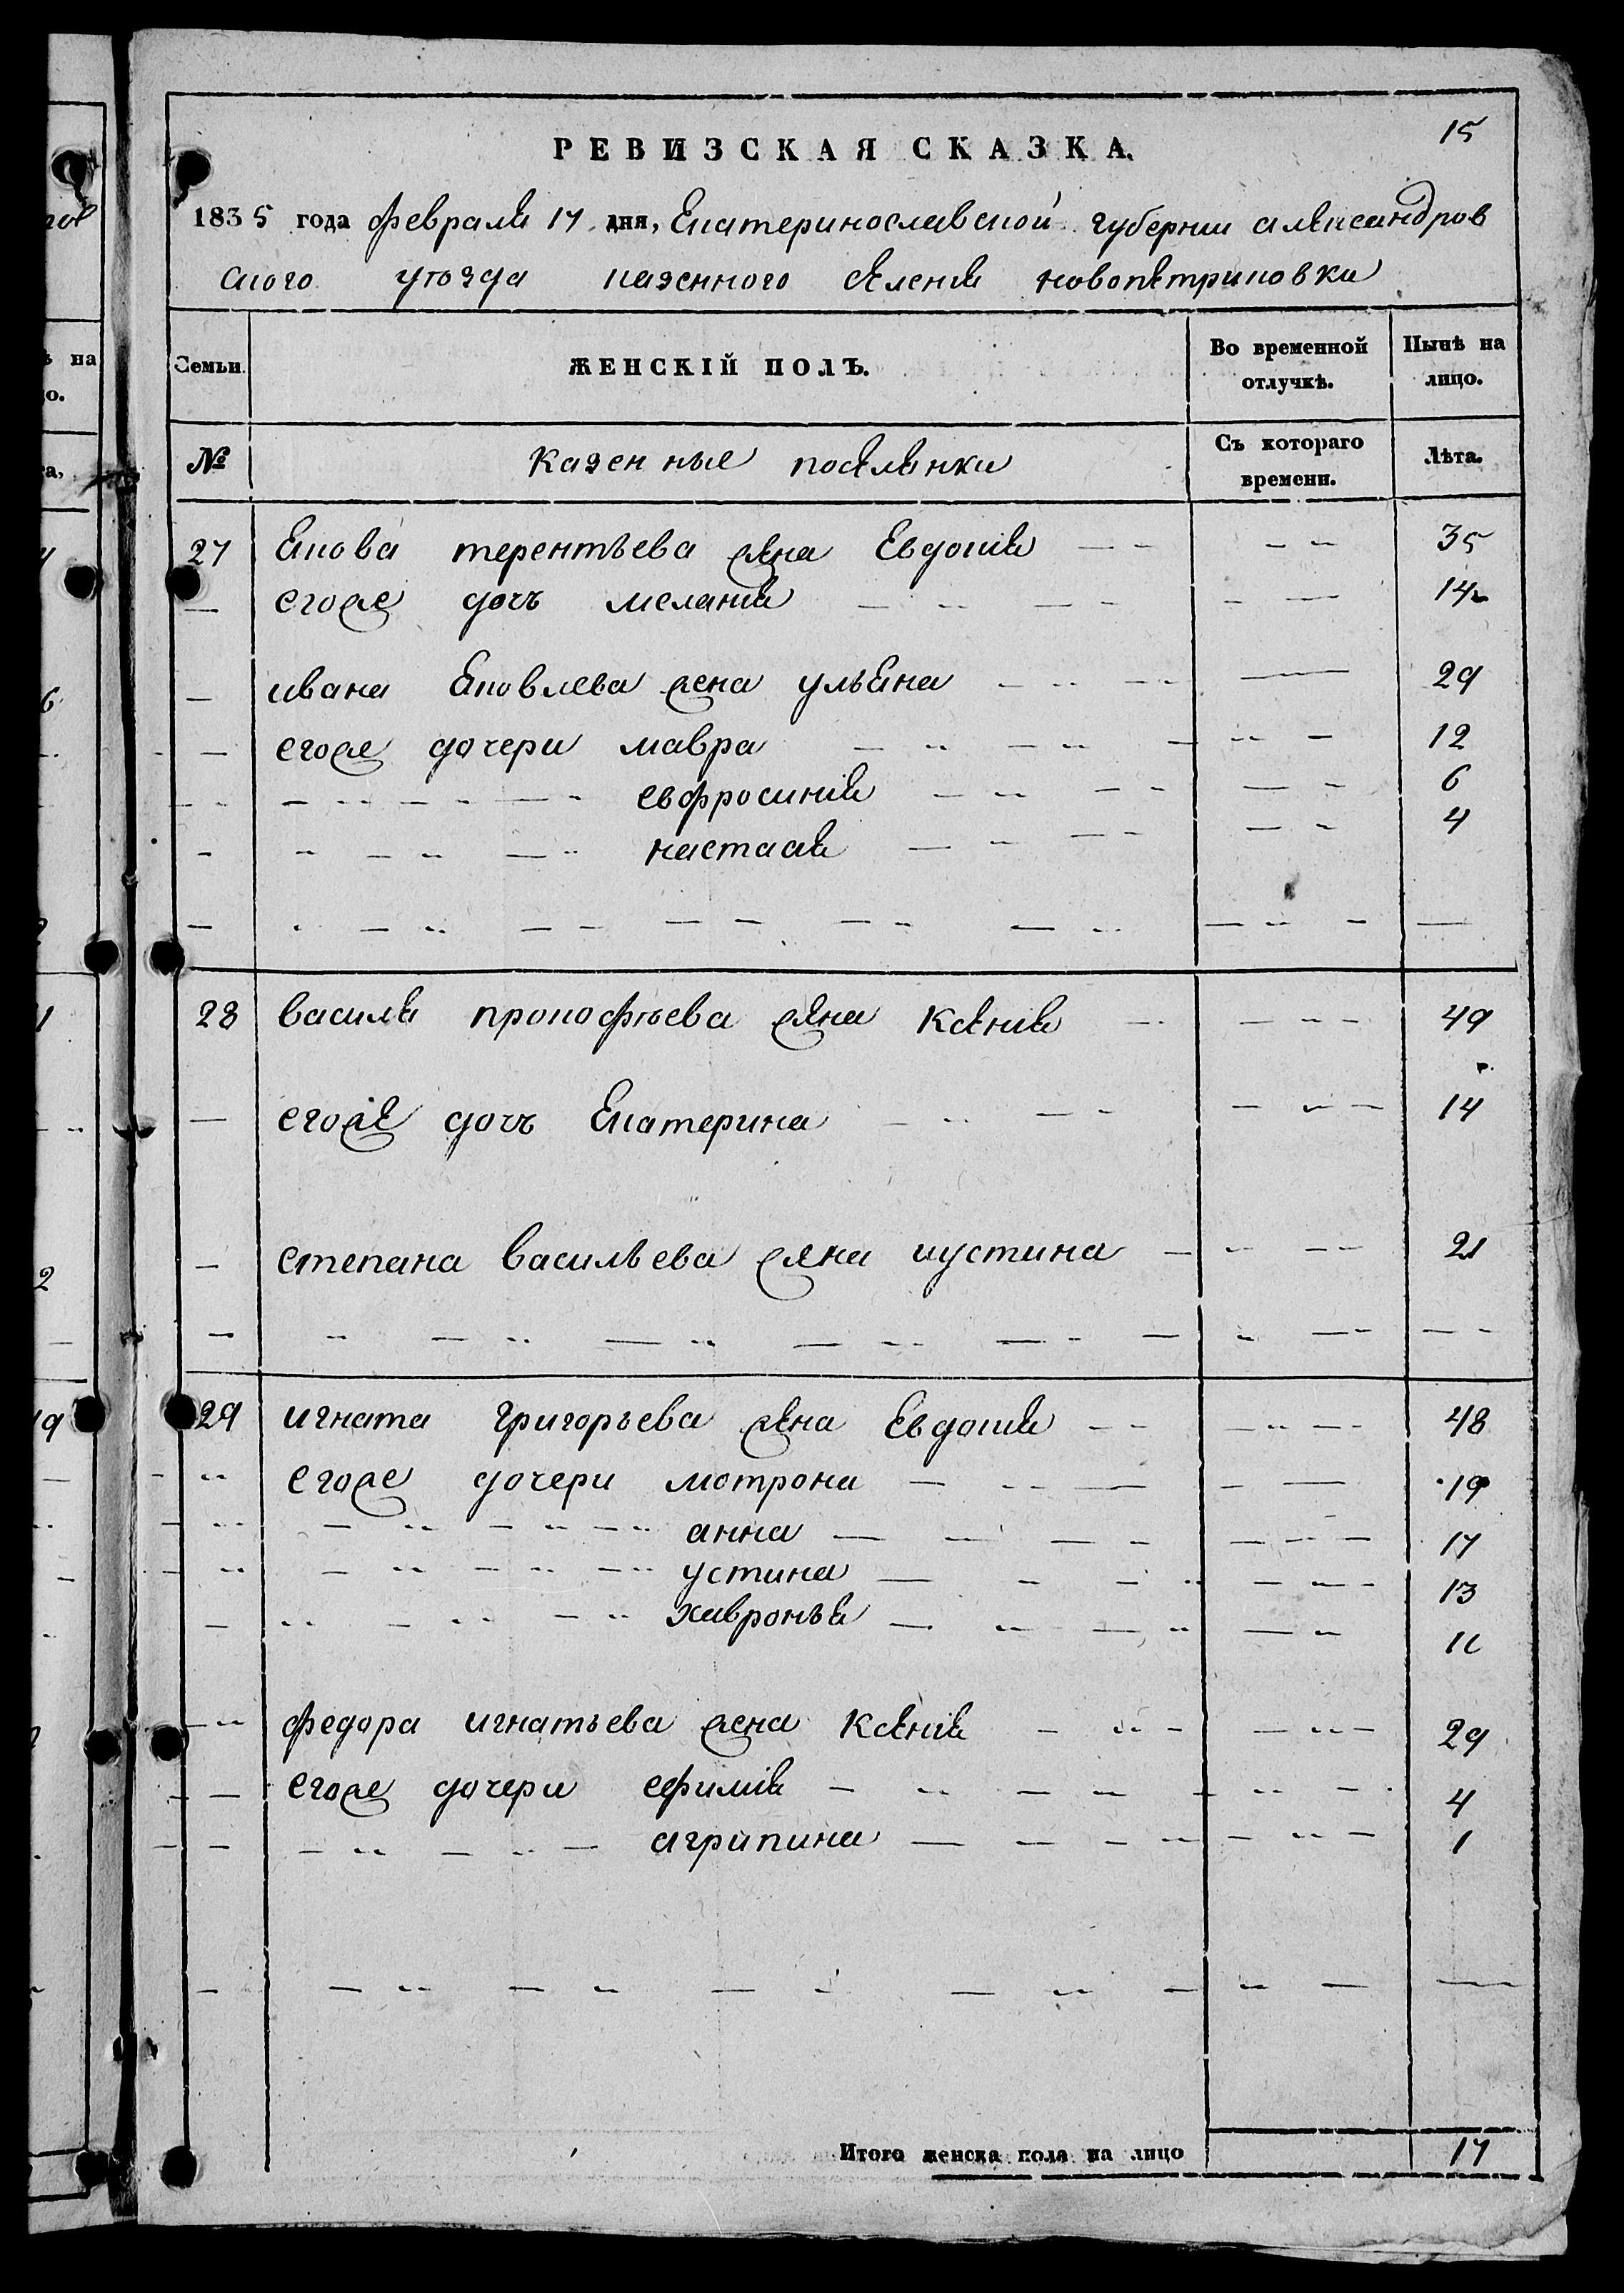 15
РЕВИЗСКАЯ СКАЗКА.
1835 года февраля 17 дня, Екатеринославской губернии александров
ского уѣзда казенного селения новопетриковки
Семьи. ЖЕНСКІЙ ПОЛЪ. Во временной отлучкѣ. Нынѣ на лицо.
№ Казенные поселянки Съ котораго времени. Лѣта.
27 Якова терентьева жена Евдокия 35
его же дочь мелания 14
ивана Яковлева жена ульяна 29
его же дочери мавра 12
евфросиния 6
настасия 4
28 василя прокофьева жена Ксения 49
его же дочь Екатерина 14
степана васильева жена иустина 21
29 игната григорьева жена Евдокия 48
его же дочери мотрона 19
анна 17
устина 13
хавронья 11
федора игнатьева жена Ксения 29
его же дочери ефимия 4
агрипина 1
Итого женска пола на лицо 17